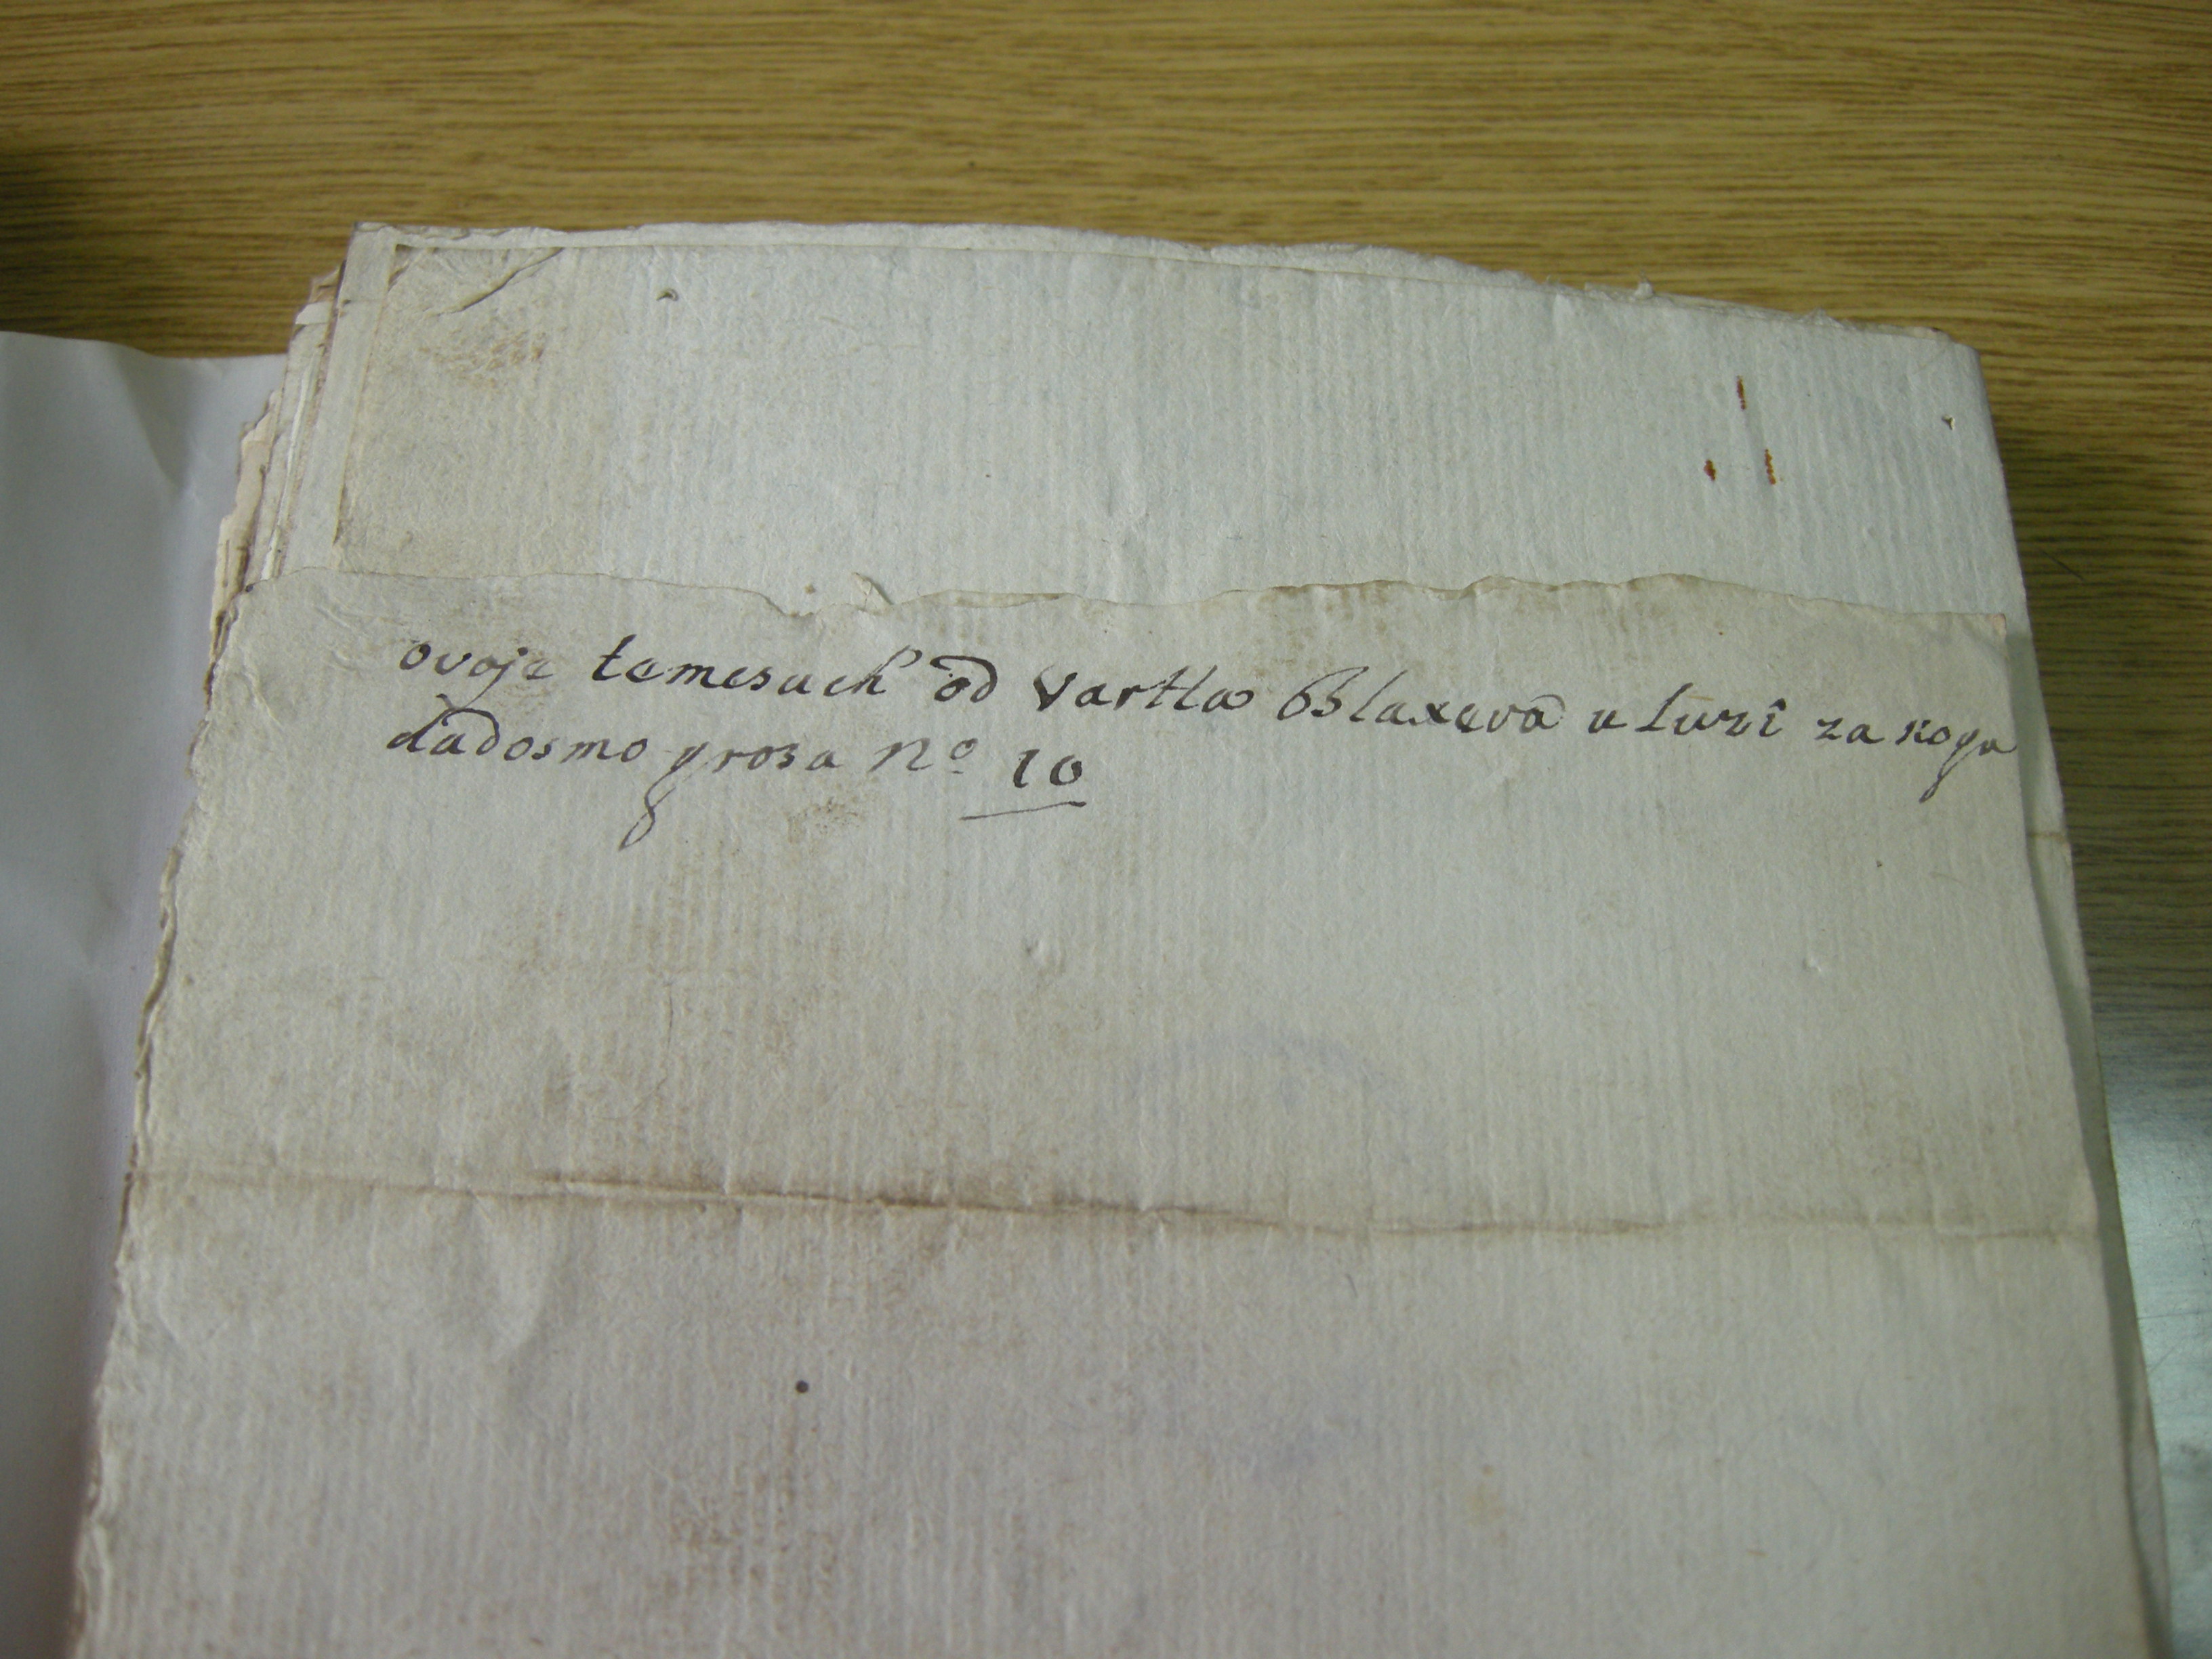 ovoje temesuch od vartla Blaxeva u luzi za koga
dadosmo grosa nº 10